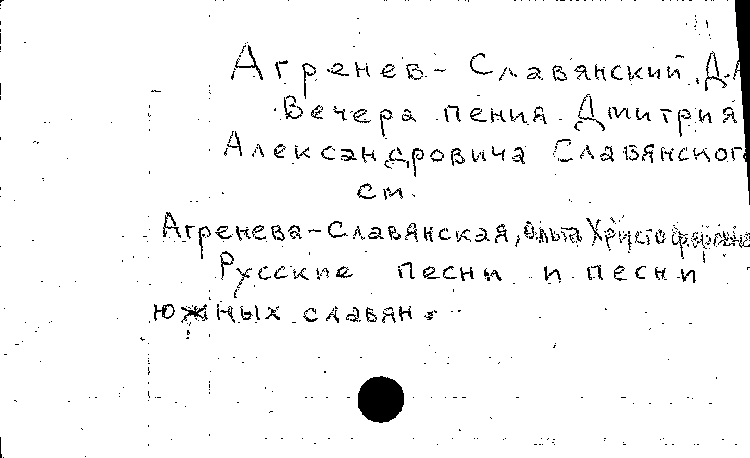 Агренев-Славянский, Д.А
Вечера пения Дмитрия
Александровича Славянского
см.
Агренева-Славянская, Ольга Христофоровна
Русские песни и песни
южных славян.